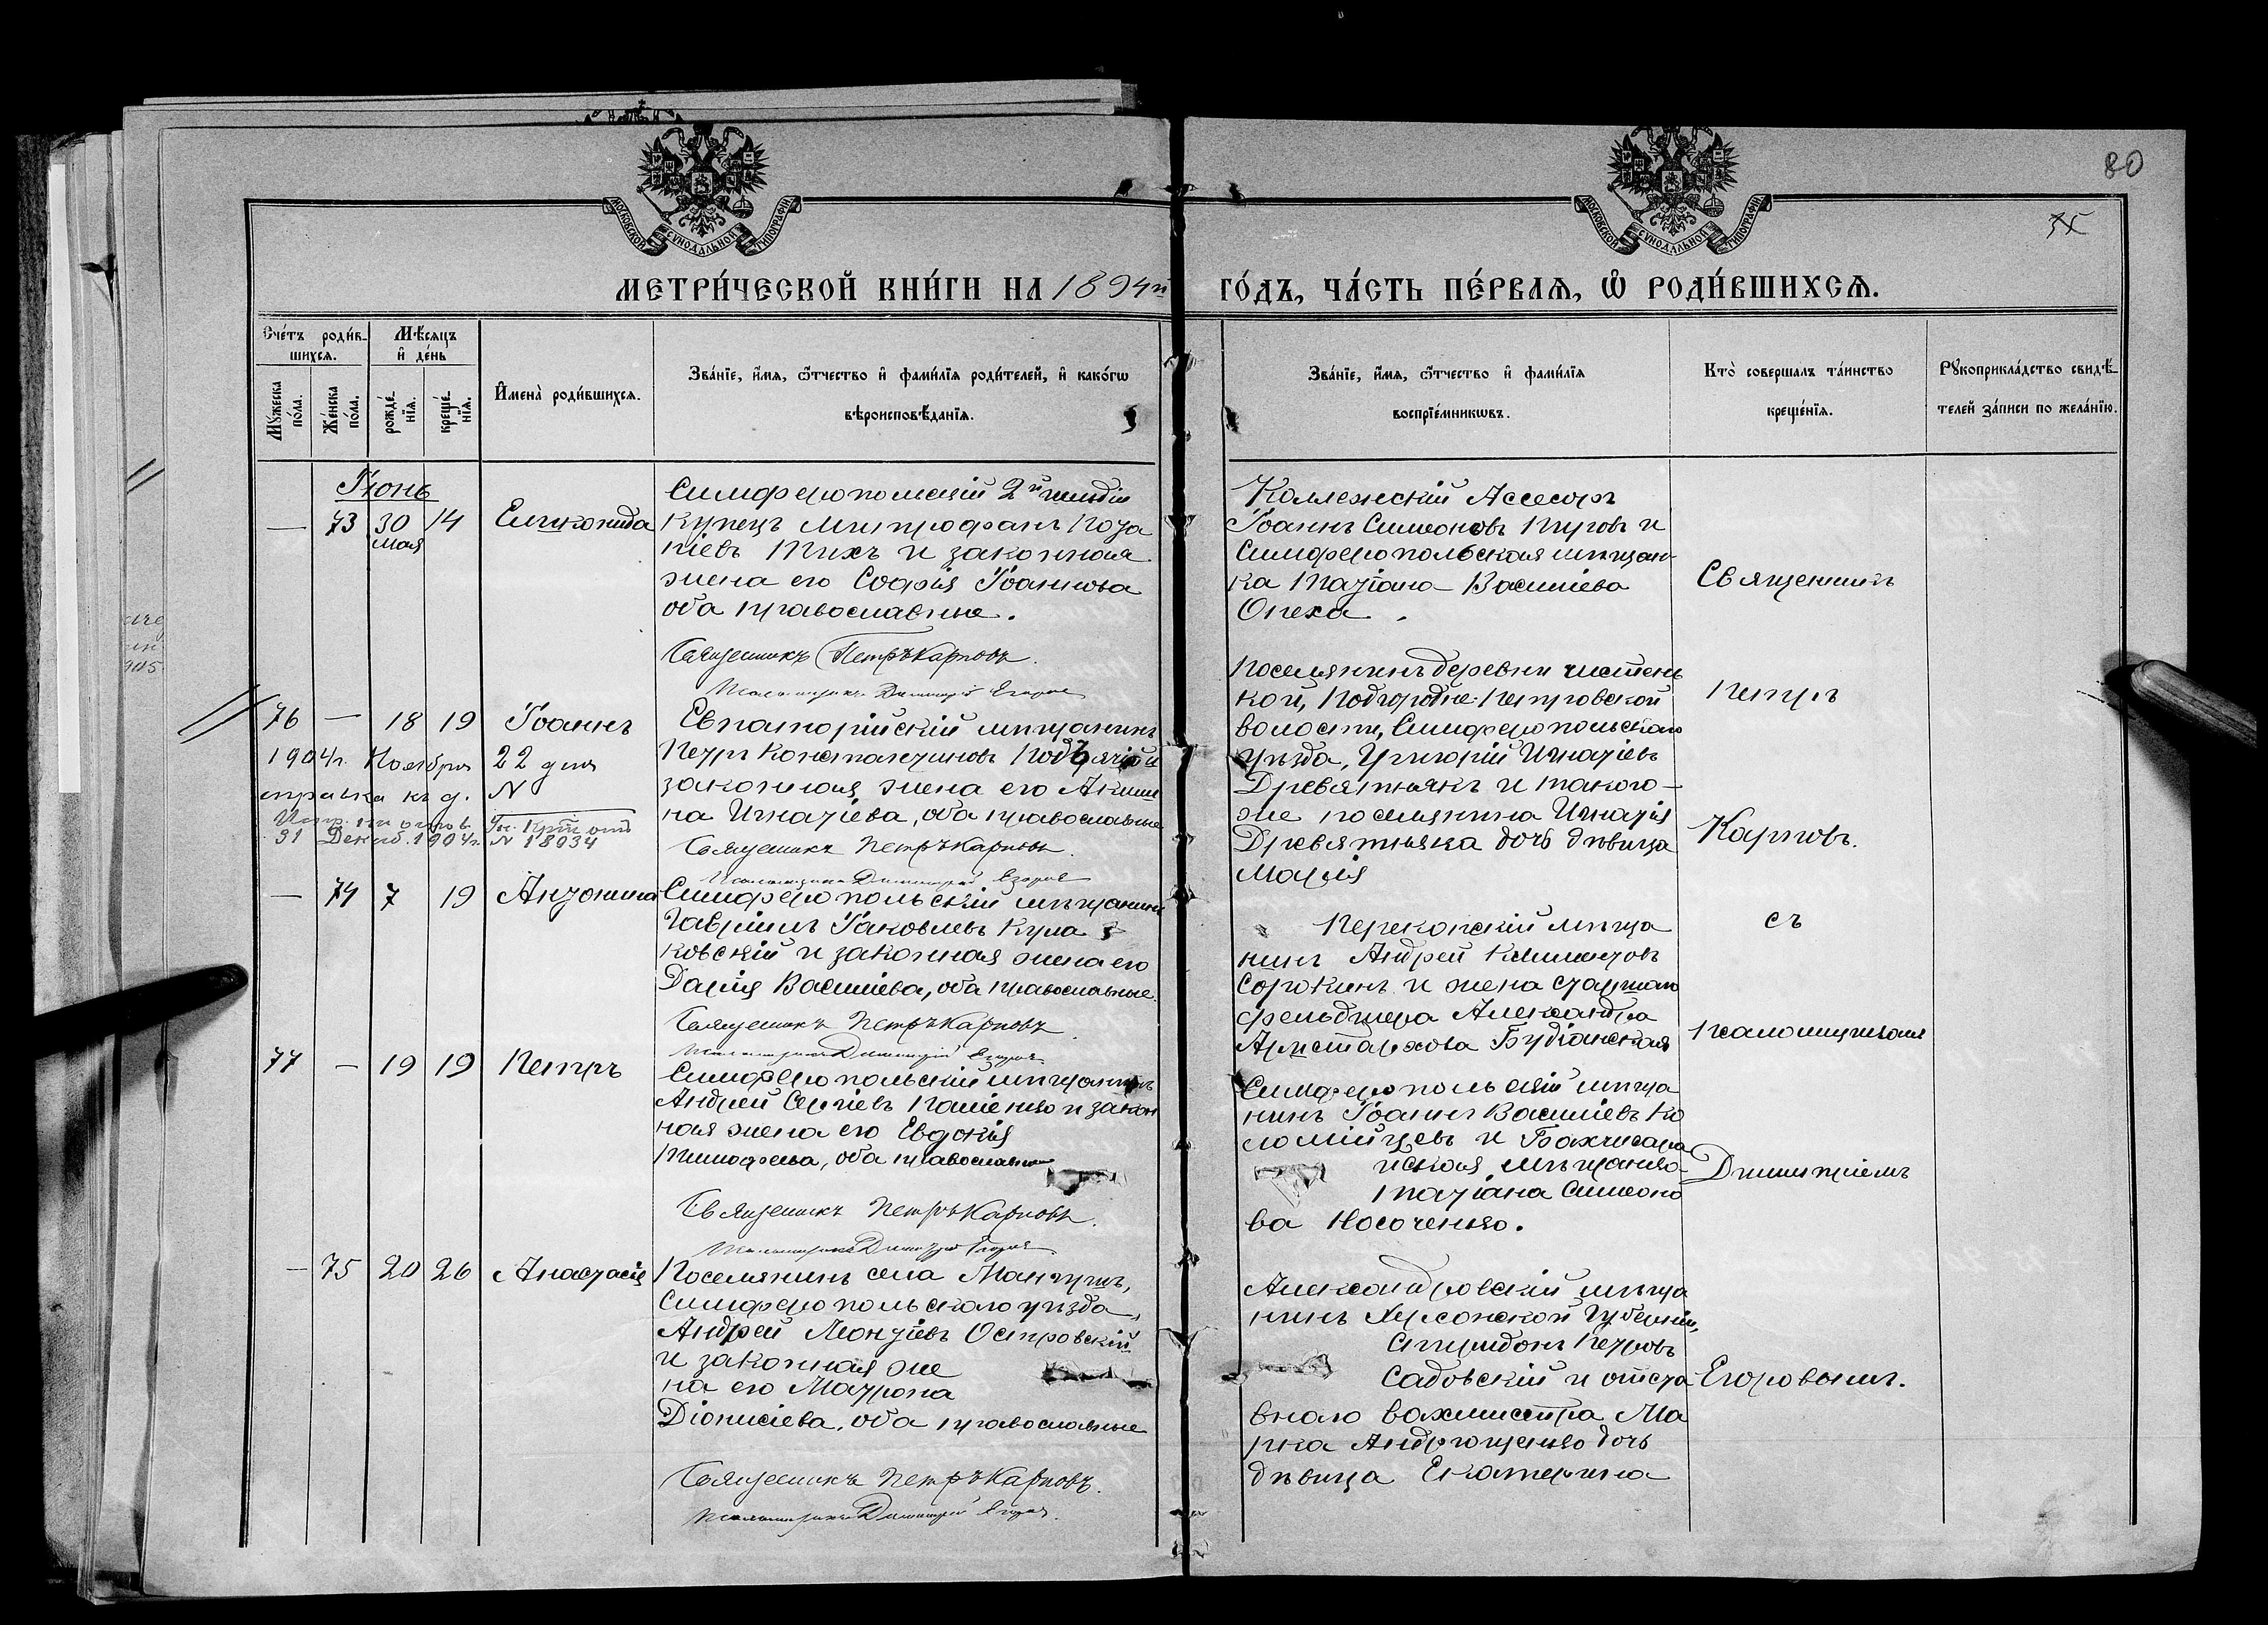 80
75
МОСКОВСКОЙ СѴНОДАЛЬНОЙ ТИПОГРАФІИ
МОСКОВСКОЙ СѴНОДАЛЬНОЙ ТИПОГРАФІИ
МЕТРИ́ЧЕСКОЙ КНИ́ГИ НА 1894й ГО́ДЪ, ЧА́СТЬ ПЕ́РВАЯ, Ѡ РОДИ́ВШИХСЯ.
Сче́тъ роди́в-
шихся.
Мѣ́сяцъ
и де́нь
Мꙋ́жеска
по́ла.
Же́нска
по́ла.
рожде́-
нїя.
креще́-
нїя.
Имена̀ роди́вшихся.
Зва́нїе, и́мя, ѻ́тчество и фами́лїя роди́телей, и како́гѡ
вѣроисповѣ́данїя.
Зва́нїе, и́мя, ѻ́тчество и фами́лїя
воспрїе́мникѡвъ.
Кто̀ соверша́лъ та́инство
креще́нїя.
Рꙋкоприкла́дство свидѣ́-
телей за́писи по жела́нїю.
Іюнь
— 73 30 14
мая
Симферопольскій 2й гильдіи
купецъ Митрофанъ
и законная
жена его Софія Іоаннова
оба православные.
Священникъ Петръ Карповъ.
Псаломщикъ Димитрій Егоровъ
Коллежскій Асессоръ
Іоаннъ Симеоновъ и
Симферопольская мѣщан-
ка Татіана Василіева
Опеха.
Священникъ
76 — 18 19 Іоаннъ
1904г. Ноября 22 дня
справка къ д. N
31 Декаб. 1904г. N 18034
Евпаторійскій мѣщанинъ
Петръ Константиновъ
законная жена его Акили
на Игнатіева, оба православные
Священникъ Петръ Карповъ.
Псаломщикъ Димитрій Егоровъ
Поселянинъ деревни Чистень
кой, Подгородне-Петровской
волости, Симферопольскаго
уѣзда, Григорій Игнатіевъ
Древятнякъ и такого-
же поселянина Игнатія
Древятняка дочь дѣвица
Марія
Петръ
Карповъ.
— 74 7 19 Антонина
Симферопольскій мѣщанинъ
Гавріилъ Іаковлевъ Кула
ковскій и законная жена его
Дарія Василіева, оба православные.
Священникъ Петръ Карповъ
Псаломщикъ Димитрій Егоровъ
Перекопскій мѣща
нинъ Андрей Климентовъ
Сорокинъ и жена старшаго
фельдшера Александра
Аристархова Будіанская
съ
псаломщикомъ
77 — 19 19 Петръ
Симферопольскій мѣщанинъ
Андрей Сергіевъ и закон
ная жена его Евдокія
Тимофеева, оба православные
Священникъ Петръ Карповъ.
Псаломщикъ Димитрій Егоровъ
Симферопольскій мѣща
нинъ Іоаннъ Василіевъ Ко
ломійцевъ и Бахчисара
йская мѣщанка
Татіана Симеоно
ва Носоченко.
Димитріемъ
— 75 20 26 Анастасія
Поселянинъ села Мангушъ,
Симферопольскаго уѣзда,
Андрей Леонтіевъ Островскій
и законная же
на его Матрона
Діонисіева, оба православные
Священникъ Петръ Карповъ.
Псаломщикъ Димитрій Егоровъ.
Александровскій мѣща
нинъ Херсонской Губерніи,
Спиридонъ Петровъ
Садовскій и отста
внаго вахмистра Ма
рка Андрющенко дочь
дѣвица Екатерина
Егоровымъ.